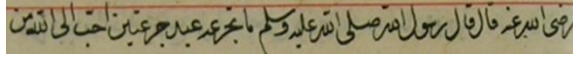 رضى الله عنه قال قال رسول الله صلى الله عليه وسلم ما تجرع عبد جرعتين احب الى الله من